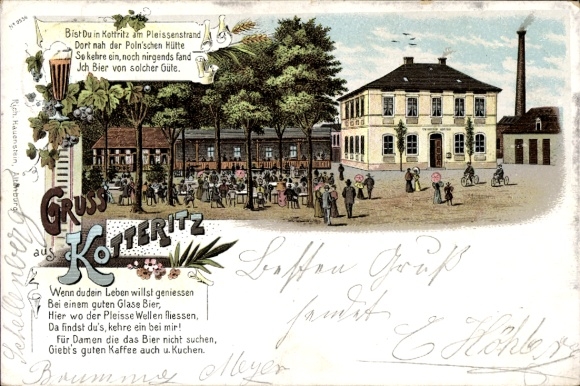 Bist Du in Kottritz am Pleissenstrand
Dort nah der Poln'schen Hütte
So kehre ein, noch nirgends fand
Jch Bier von solcher Güte.
Rich. Hauenstein, Altenburg
GRUSS
aus
KOTTERITZ
Wenn du dein Leben willst geniessen
Bei einem guten Glase Bier,
Hier wo der Pleisse Wellen fliessen,
Da findst du's, kehre ein bei mir!
Für Damen die das Bier nicht suchen,
Giebt's guten Kaffee auch u. Kuchen.
Besten Gruß
sendet
Meyer